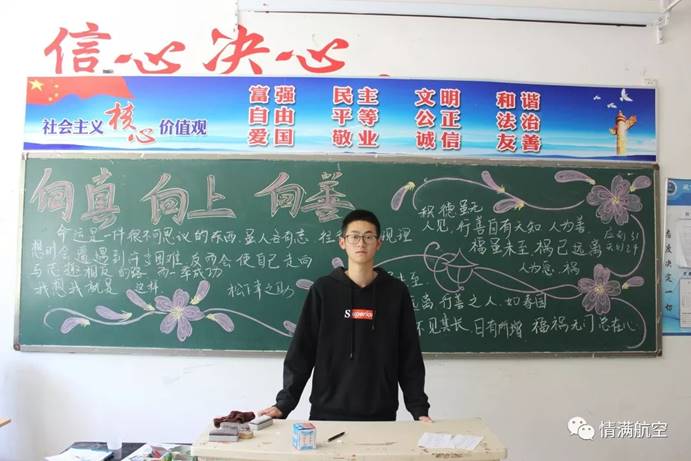 信心 决心
富强 民主 文明 和谐
自由 平等 公正 法治
爱国 敬业 诚信 友善
社会主义核心价值观
向真 向上 向善
命运是一件很不可思议的东西,虽人各有志
理
想时会遭遇到许多困难,反而会使自己走向
与志趣相反的路,而一举成功
我想我就是这样
松下幸之助
积德虽无
人见,行善自有天知 人为善
福虽未至,祸已远离
人为恶,祸
至
行善之人,如春园
不见其长,日有所增
福祸无门总在心
Superior
态度决定一切
情满航空